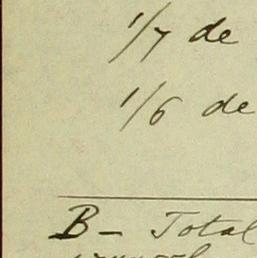 1/7 de
1/6 de
B - Total